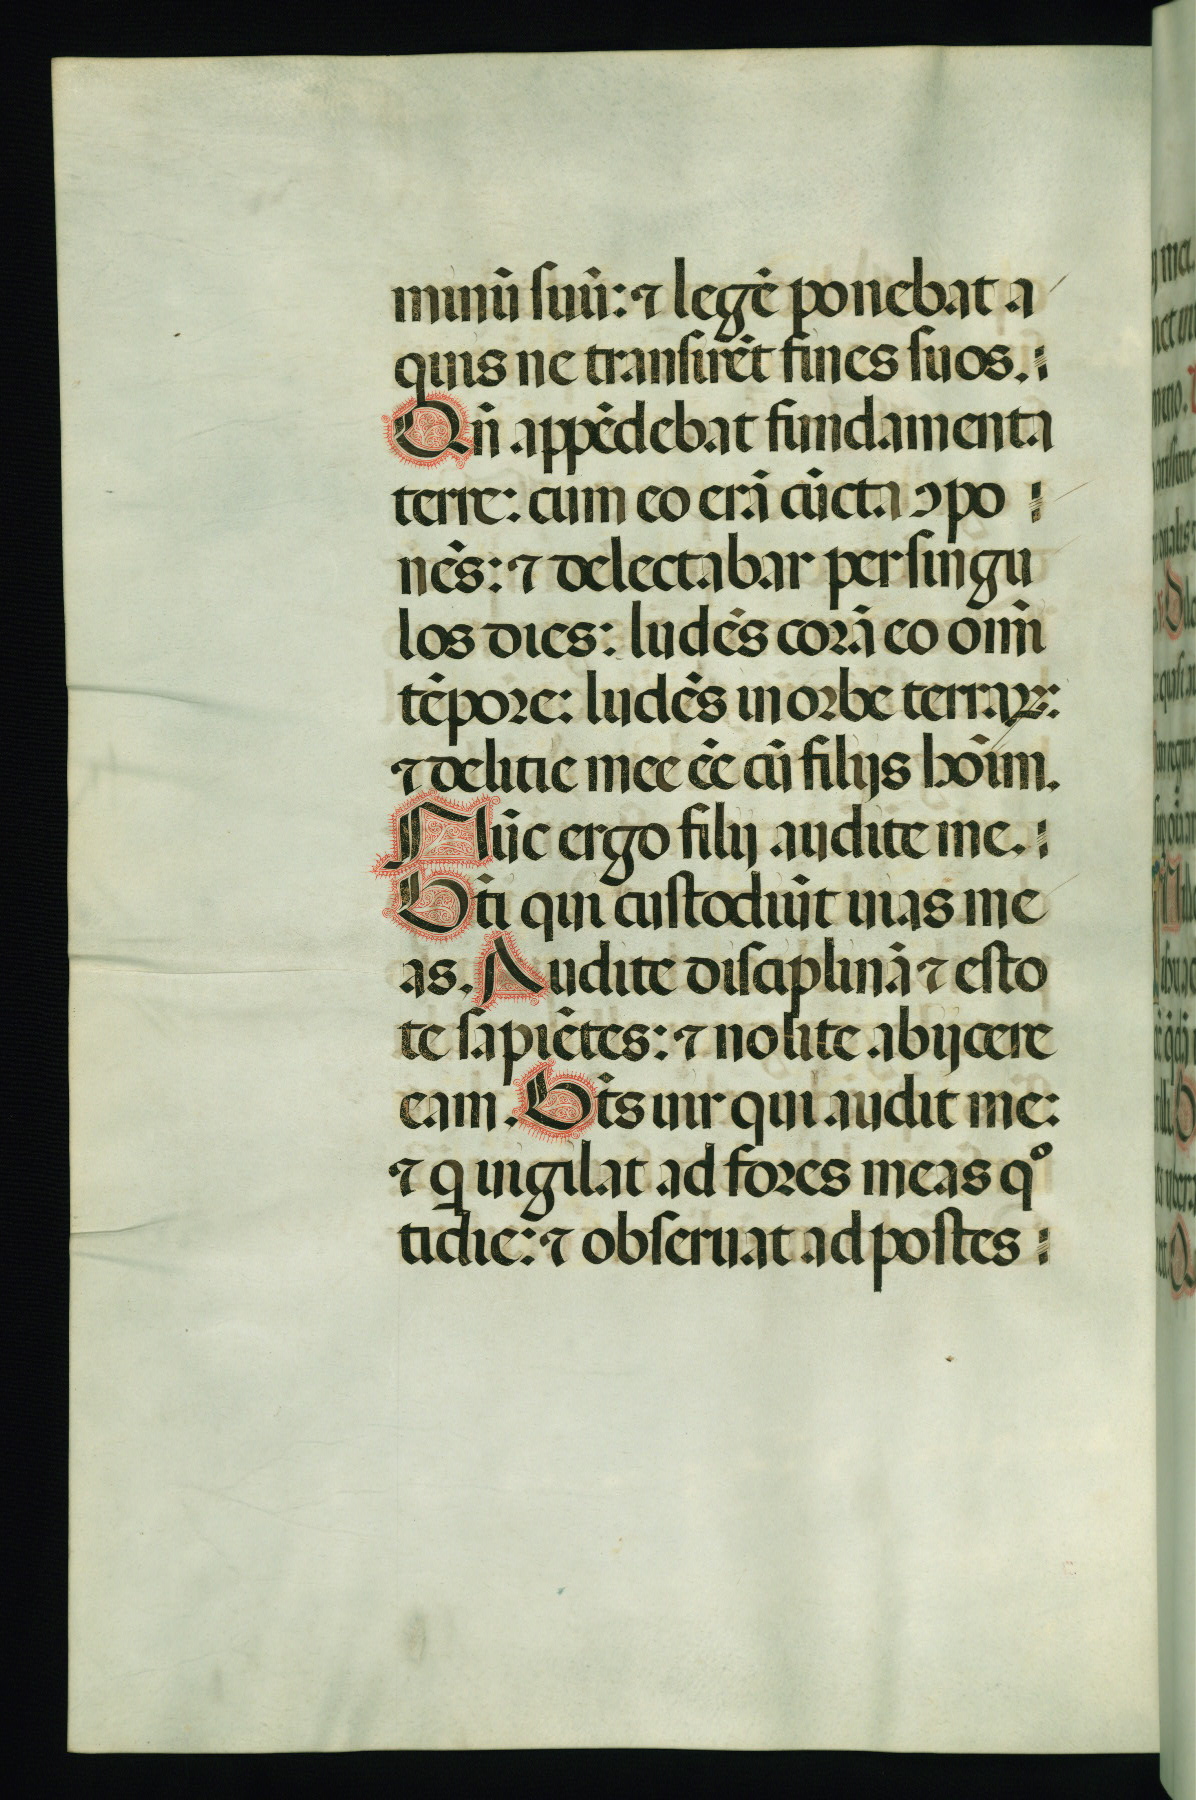 minū suū: ⁊ legē ponebat a
quis ne transirēt fines suos.
Qn̄ appēdebat fundamenta
terre: cum eo erā cūcta ꝯpo
nēs: ⁊ delectabar per singu
los dies: ludēs corā eo om̄i
tēpore: ludēs in orbe terraꝝ:
⁊ delitie mee eē cū filijs hoīm.
Nūc ergo filij audite me.
Bt̄i qui custodiūt uias me
as. Audite disciplinā ⁊ esto
te sapiētes: ⁊ nolite abijcere
eam. Bt̄s uir qui audit me:
⁊ ꝗ uigilat ad fores meas qͦ
tidie: ⁊ obseruat ad postes